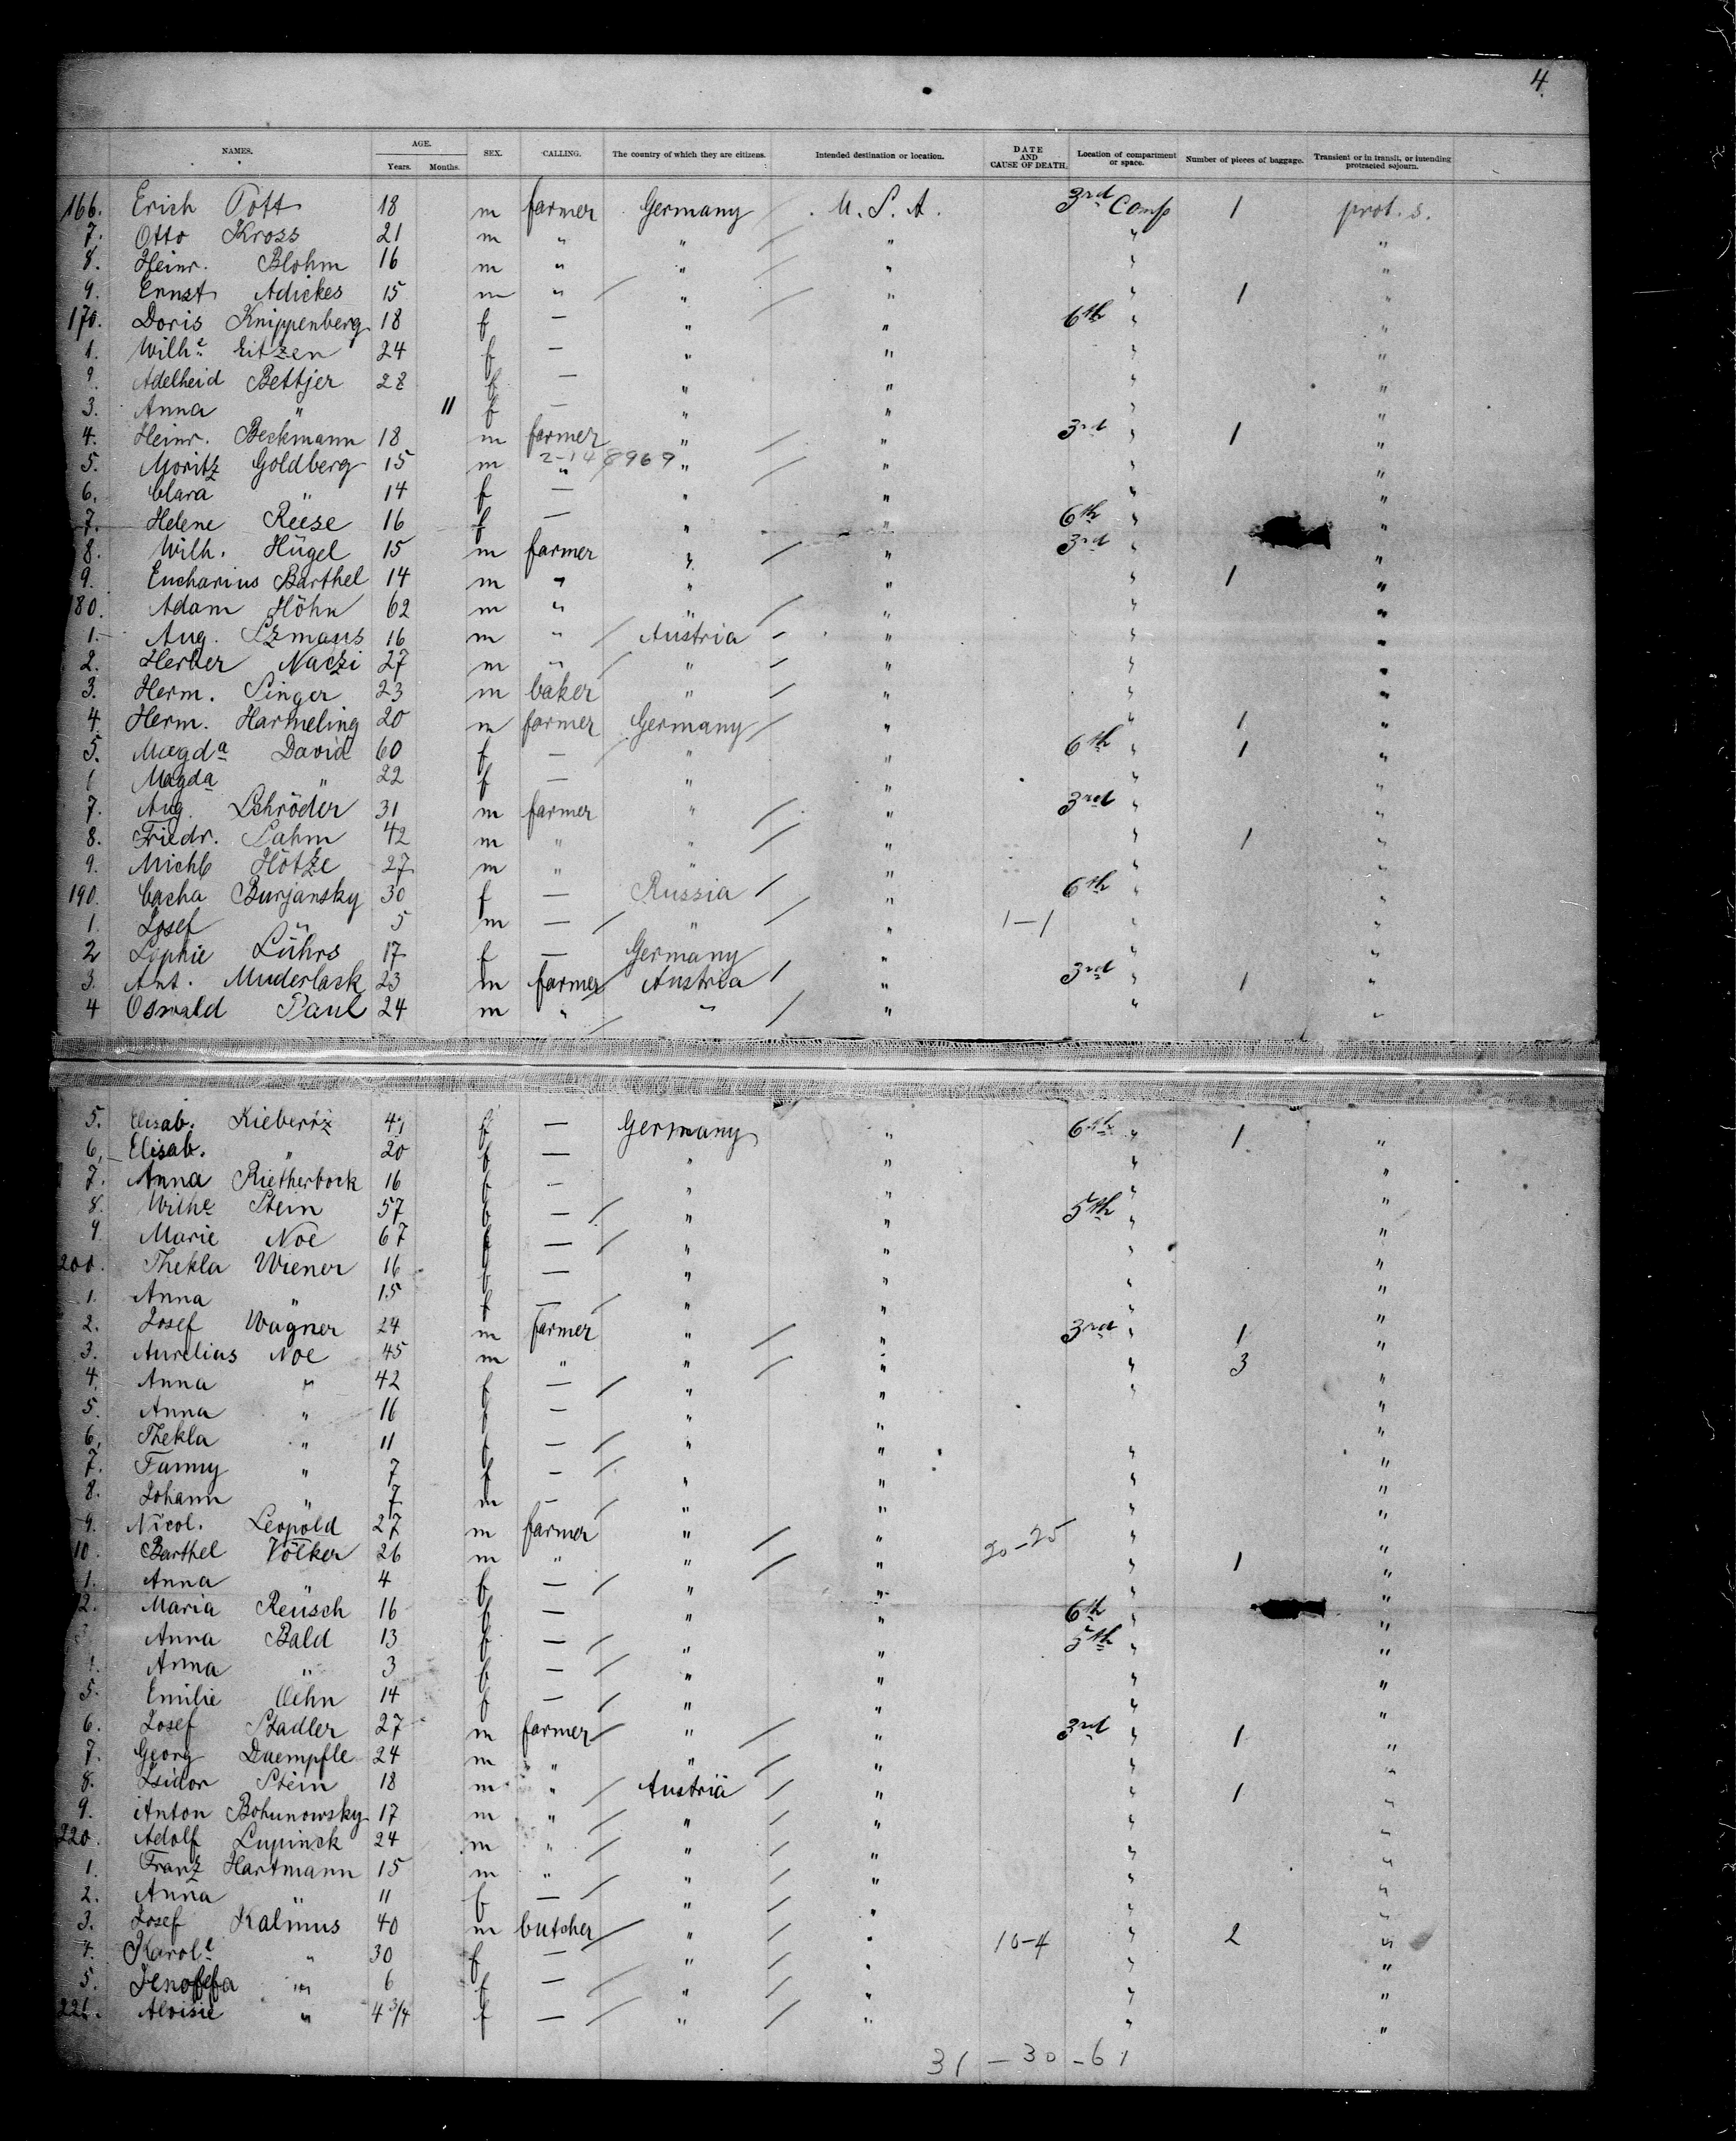 4.
NAMES. AGE. Years. Months. SEX. CALLING. The country of which they are citizens. Intended destination or location. DATE AND CAUSE OF DEATH. Location of compartment or space. Number of pieces of baggage. Transient or in transit, or intending protracted sojourn.
166. Erich Pott 18 m farmer Germany / U. S. A. 3rd Comp 1 prot. s.
7. Otto Kross 21 m " " / " " "
8. Heinr. Blohm 16 m " " / " " "
9. Ernst Adickes 15 m " / " / " " 1 "
170. Doris Knippenberg 18 f — " " 6th " "
1. Wilhe Eitzen 24 f — " " " "
Adelheid Bettjer 28 f — " " " "
3. Anna " 11 f — " " " "
4. Heinr. Beckmann 18 m farmer " / " 3rd " 1 "
5. Moritz Goldberg 15 m " 2-148969 " / " " "
6. Clara " 14 f — " " " "
7. Helene Reese 16 f — " " 6th " "
8. Wilh. Hügel 15 m farmer " / " 3rd " "
9. Eucharius Barthel 14 m " " " " 1 "
180. Adam Höhn 62 m " " / " " "
1. Aug. 16 m " / Austria / " " "
2. Herber Naczi 27 m " / " / " " "
3. Herm. Singer 23 m baker " / " " "
4. Herm. Harmeling 20 m farmer Germany / " " 1 "
5. Magda David 60 f — / " " 6th " 1 "
Magda " 22 f — " " " "
7. Aug. Schröder 31 m farmer " / " 3rd " "
8. Friedr. Sahm 42 m " " / " " 1 "
9. Michl Hötze 27 m " " " " "
190. Cacha Burjansky 30 f — Russia / " 6th " "
1. Josef " 5 m — / " / " 1–1 " "
2 Sophie Lührs 17 f — Germany " " "
3. Ant. Muderlask 23 m farmer / Austria / " 3rd " 1 "
4 Oswald Paul 24 m " / " / " " "
5. Elisab. Kiebertz f — Germany " 6th " 1 "
6. Elisab. " 20 f — " " " "
7. Anna Rietherbock 16 f — " " " "
8. Wilhe Stein 57 f — / " " 5th " "
9. Marie Noe 67 f — / " " " "
200. Thekla Wiener 16 f — " " " "
1. Anna " 15 f — / " " " "
2. Josef Wagner 24 m farmer " / " 3rd " 1 "
3. Aurelius Noe 45 m " " / " " 3 "
4. Anna " 42 f — / " " " "
5. Anna " 16 f — " " "
6. Thekla " 11 f — / " " " "
7. Fanny " 7 f — / " " " "
8. Johann " 7 m — / " " " "
9. Nicol. Leopold 27 m farmer " / " 20–25 " "
10. Barthel Völker 26 m " " / " " 1 "
1. Anna " 4 f — / " " " "
2. Maria Reusch 16 f — " " 6th " "
3. Anna Bald 13 f — / " " 5th " "
Anna " 3 f — / " " " "
5. Emilie Oehn 14 f — / " " " "
6. Josef Stadler 27 m farmer / " / " 3rd " 1 "
7. Georg Daempfle 24 m " " / " " "
8. Isidor Stein 18 m " / Austria / " " 1 "
9. Anton Bohunowsky 17 m " / " / " "
220. Adolf Lupinsk 24 m " / " / " " "
1. Franz Hartmann 15 m " " / " " "
2. Anna " 11 f — / " / " " "
3. Josef Kalmus 40 m butcher / " / " 10–4 " 2 "
4. Karole " 30 f — " / " " "
5. Jenofefa " 6 f — / " / " " "
226. Aloisie " 4 3/4 f — / " / " " "
31 – 30 – 61